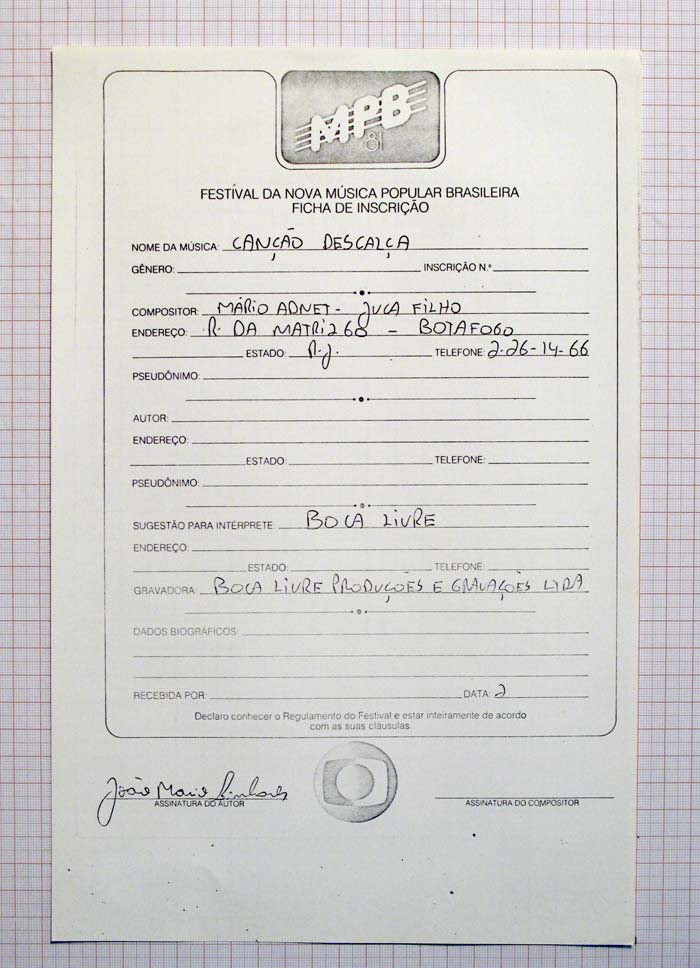 MPB
81
FESTIVAL DA NOVA MÚSICA POPULAR BRASILEIRA
FICHA DE INSCRIÇÃO
NOME DA MÚSICA: CANÇÃO DESCALÇA
GÊNERO: INSCRIÇÃO N.º
COMPOSITOR: MÁRIO ADNET - JUCA FILHO
ENDEREÇO: R. DA MATRIZ 60 - BOTAFOGO
ESTADO: R.J. TELEFONE: 2-26-14-66
PSEUDÔNIMO:
AUTOR:
ENDEREÇO:
ESTADO: TELEFONE:
PSEUDÔNIMO:
SUGESTÃO PARA INTÉRPRETE: BOCA LIVRE
ENDEREÇO:
ESTADO: TELEFONE:
GRAVADORA: BOCA LIVRE PRODUÇÕES E GRAVAÇÕES LTDA
DADOS BIOGRÁFICOS:
RECEBIDA POR: DATA: 2
Declaro conhecer o Regulamento do Festival e estar inteiramente de acordo
com as suas cláusulas.
João Mario Linhares
ASSINATURA DO AUTOR ASSINATURA DO COMPOSITOR